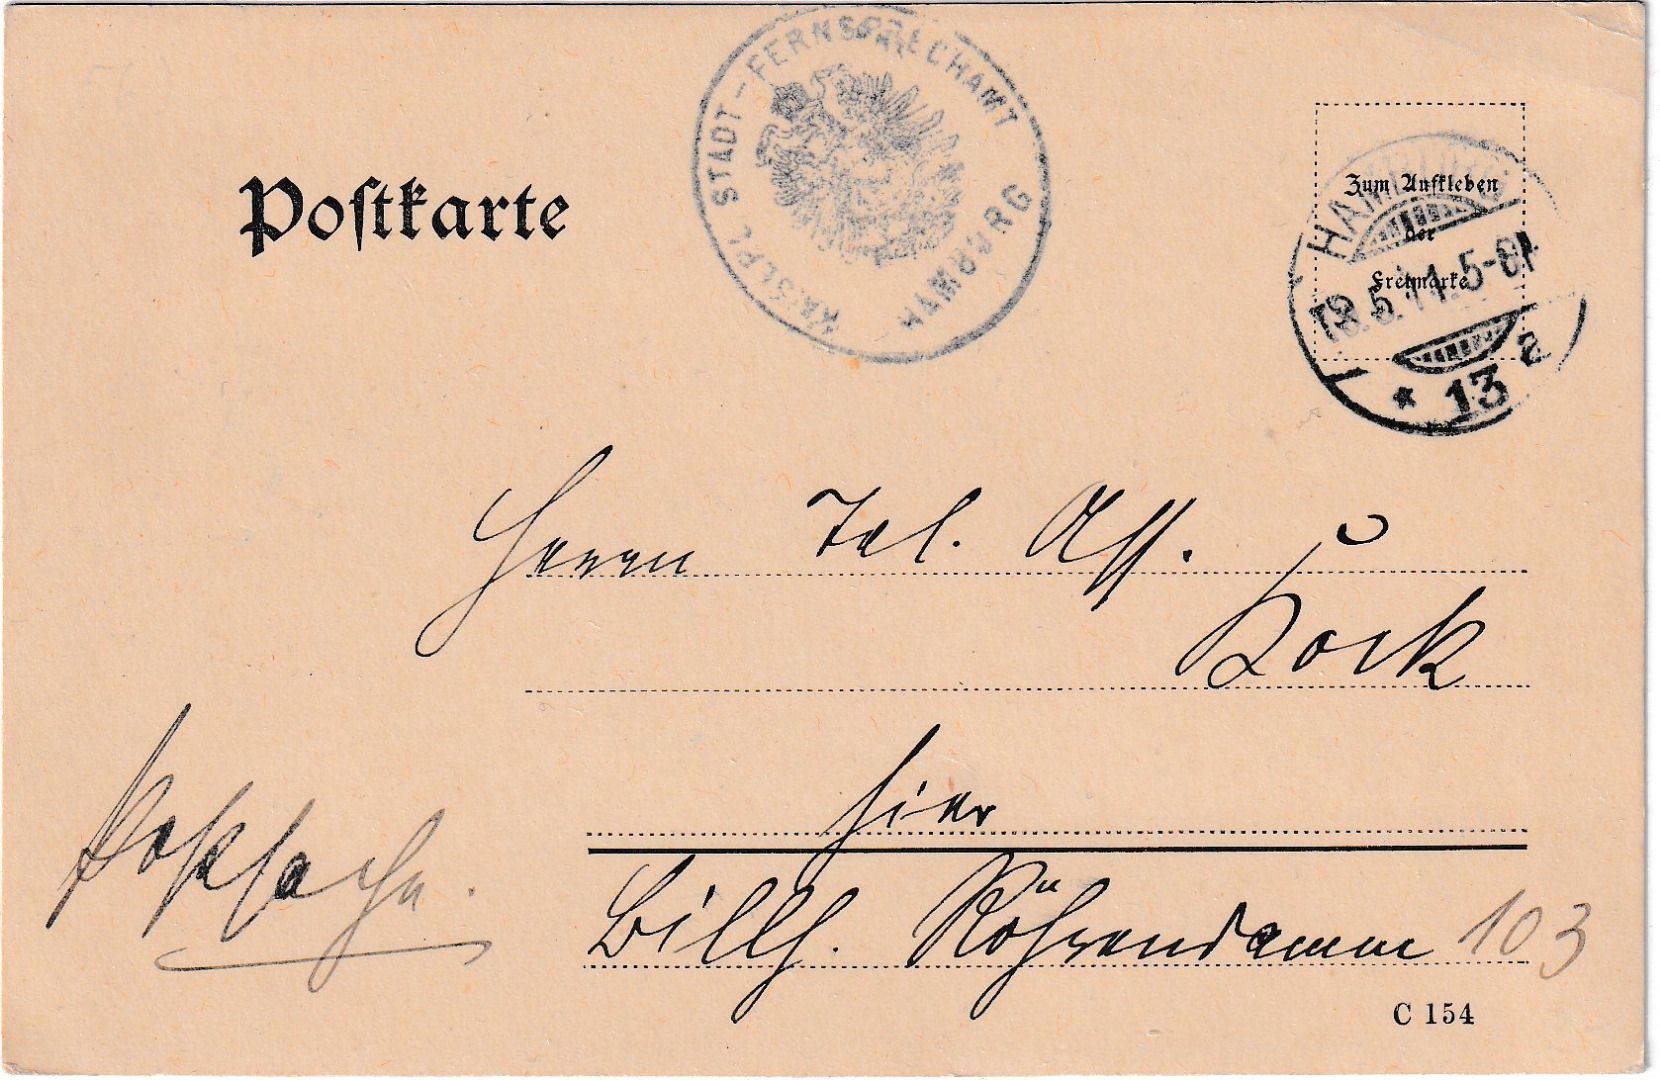 Postkarte
KAISERL. STADT-FERNSPRECHAMT
HAMBURG
Zum Aufkleben
der
Freimarke
HAMBURG
18.5.11. 5-6N
* 13 a
Herrn Tel. Ass.
Kock
hier
Billh. Röhrendamm 103
Postsache.
C 154